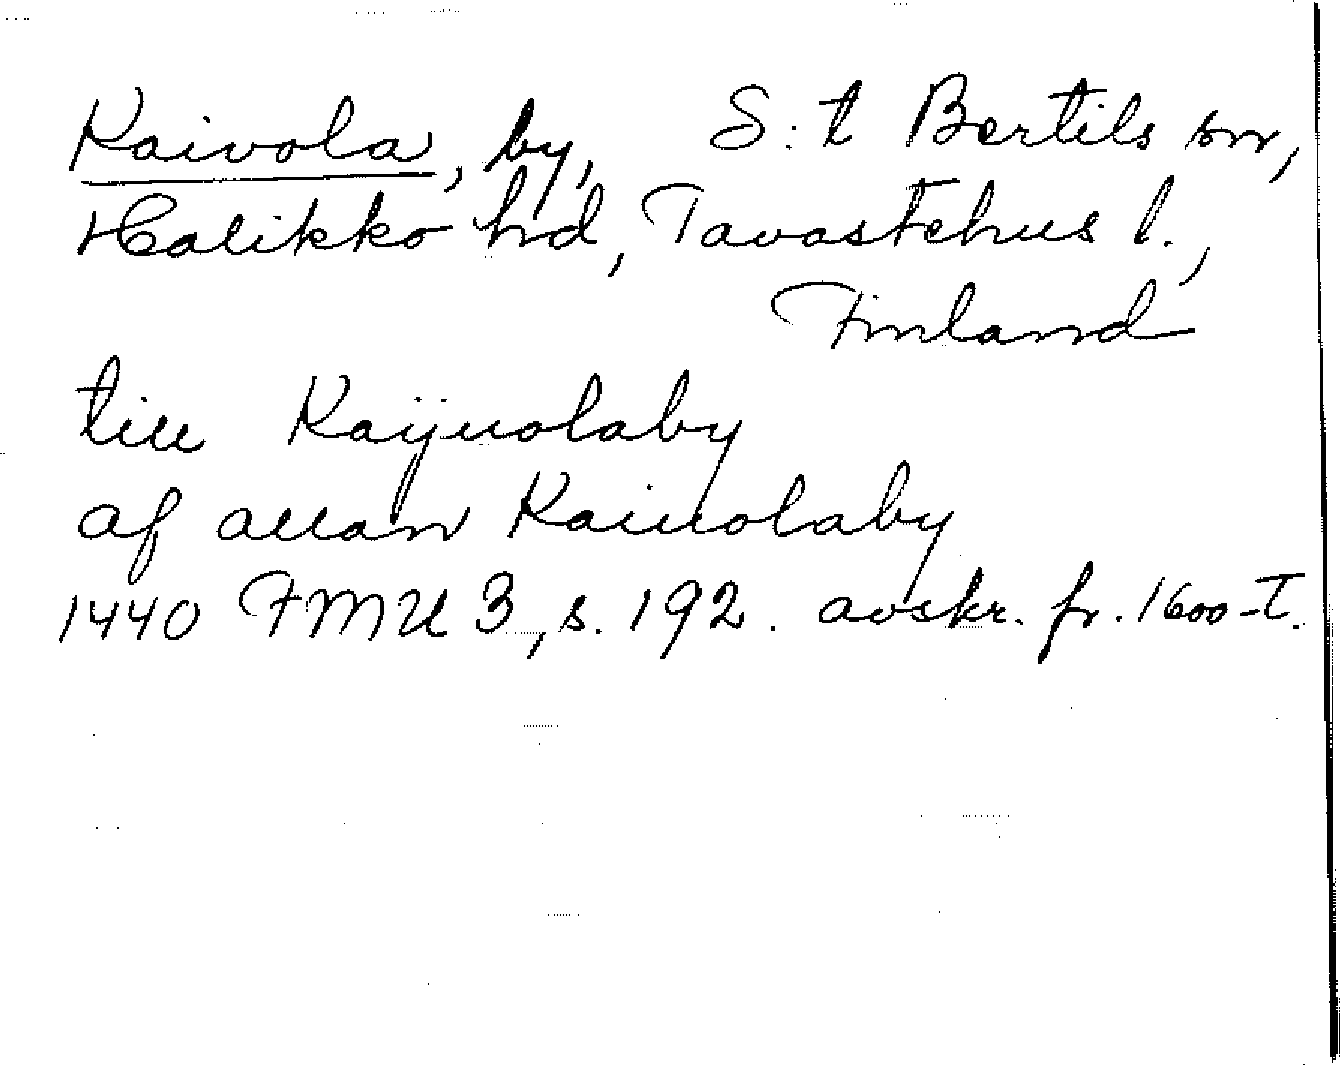 Kaivola, by, S:t Bertils sn,
Halikko hd, Tavastehus l.,
Finland
till Kaijuolaby
af allan Kaiuolaby
1440 FMU 3, s. 192. avskr. fr. 1600-t.